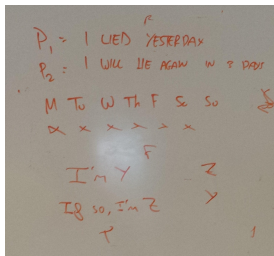 F
P1 = I LIED YESTERDAY
P2 = I WILL LIE AGAIN IN 3 DAYS
M Tu W Th F Sa Su
x x x x x x
F
I'm Y Z
If so, I'm Z Y
T 1